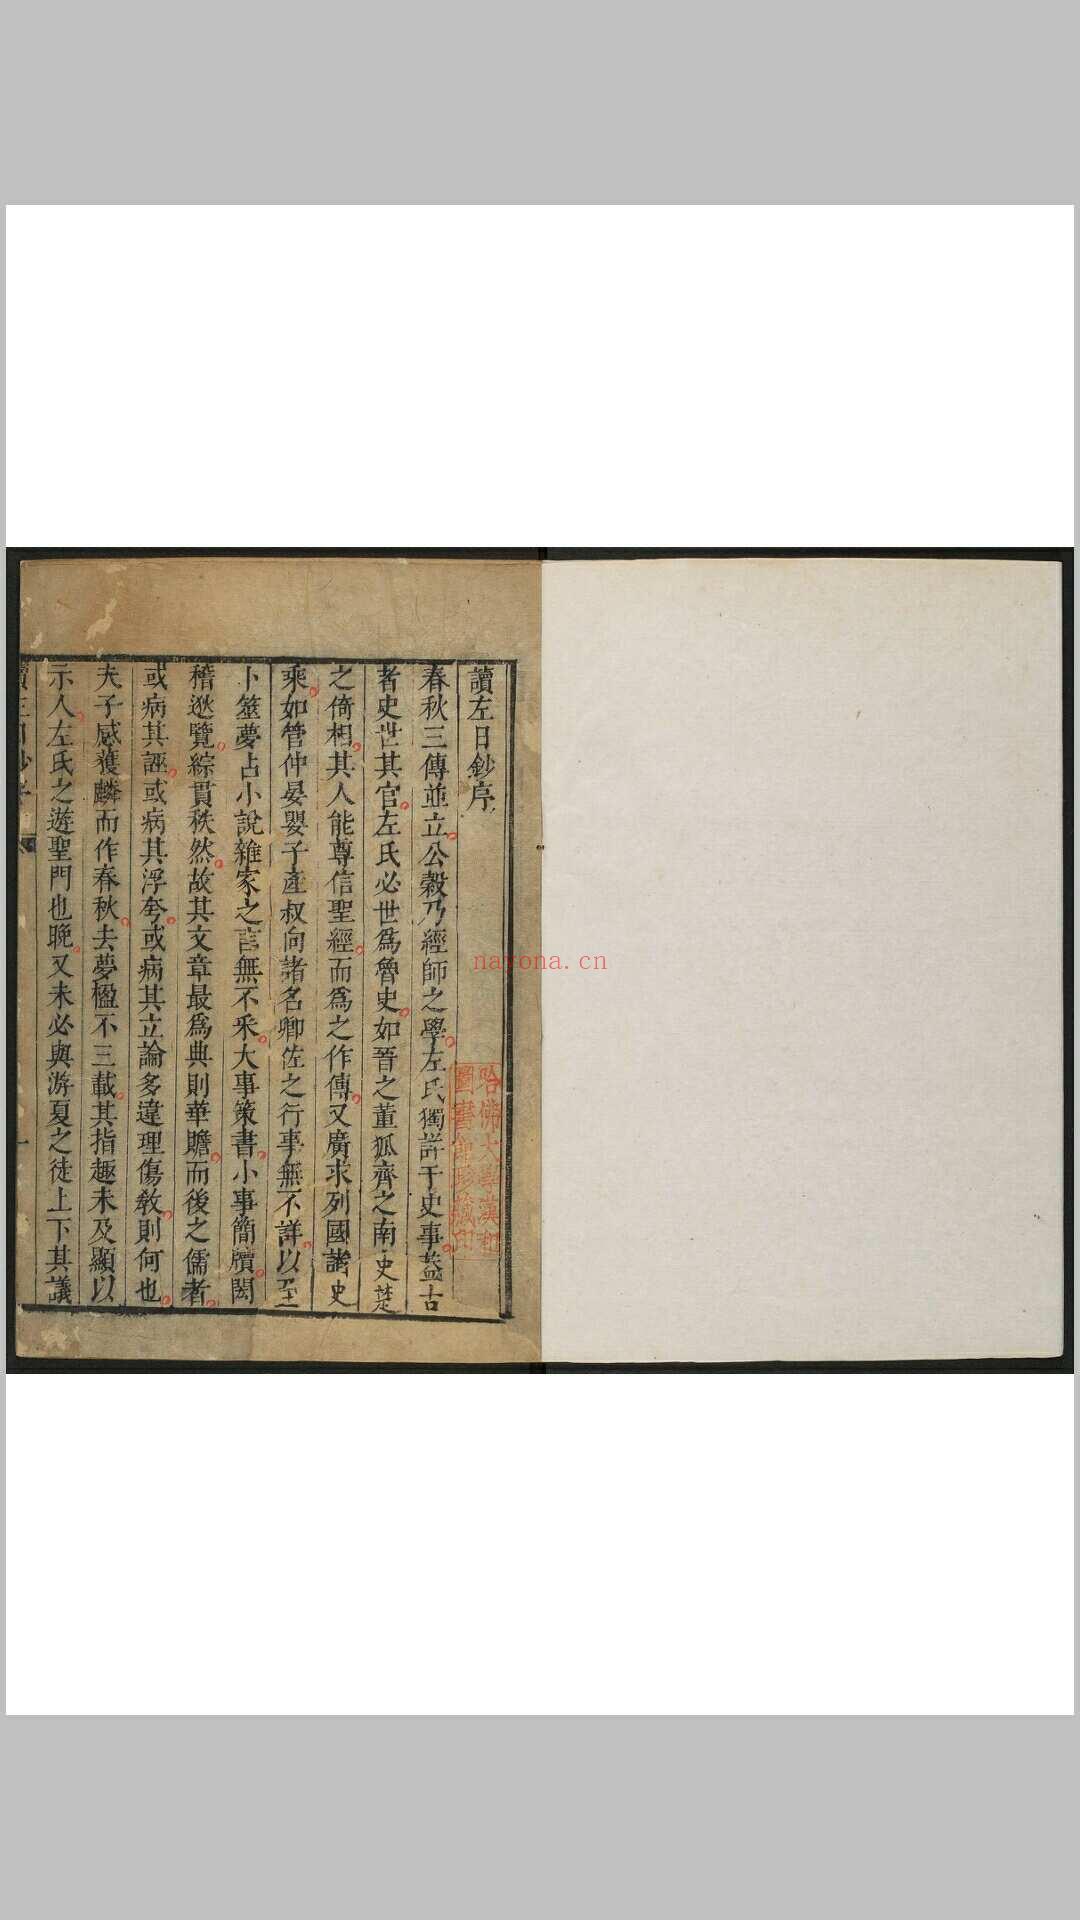 讀左日鈔序
春秋三傳並立公穀乃經師之學左氏獨詳于史事蓋古
者史世其官左氏必世爲魯史如晉之董狐齊之南史楚
之倚相其人能尊信聖經而爲之作傳又廣求列國諸史
乘如管仲晏嬰子產叔向諸名卿佐之行事無不詳以至
卜筮夢占小說雜家之言無不采大事策書小事簡牘閎
稽逖覽綜貫秩然故其文章最爲典則華贍而後之儒者
或病其誣或病其浮夸或病其立論多違理傷教則何也
夫子感獲麟而作春秋去夢楹不三載其指趣未及顯以
示人左氏之遊聖門也晚又未必與游夏之徒上下其議
讀左日鈔序
一
哈佛大學漢和
圖書館珍藏印
nayona.cn